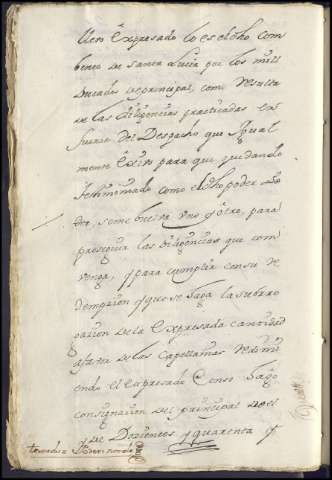 expresado lo es el dho com
bento de Santa Lucia que los mill
Ducados de principal, como resulta
de las diligencias practicadas en
fuerza del Despacho que Igual
mente para que quedando
testimoniado como el dho poder
se me buelva uno y otro, para
proseguir las diligencias que com
venga, y para cumplir con su Re
dempcion y que se haga la subrro
gacion de la Expresada cantidad
afavor de las Capellanias redimi
endo el expresado Censo hago
consignacion del principal de el
de Doscientos y quarenta y